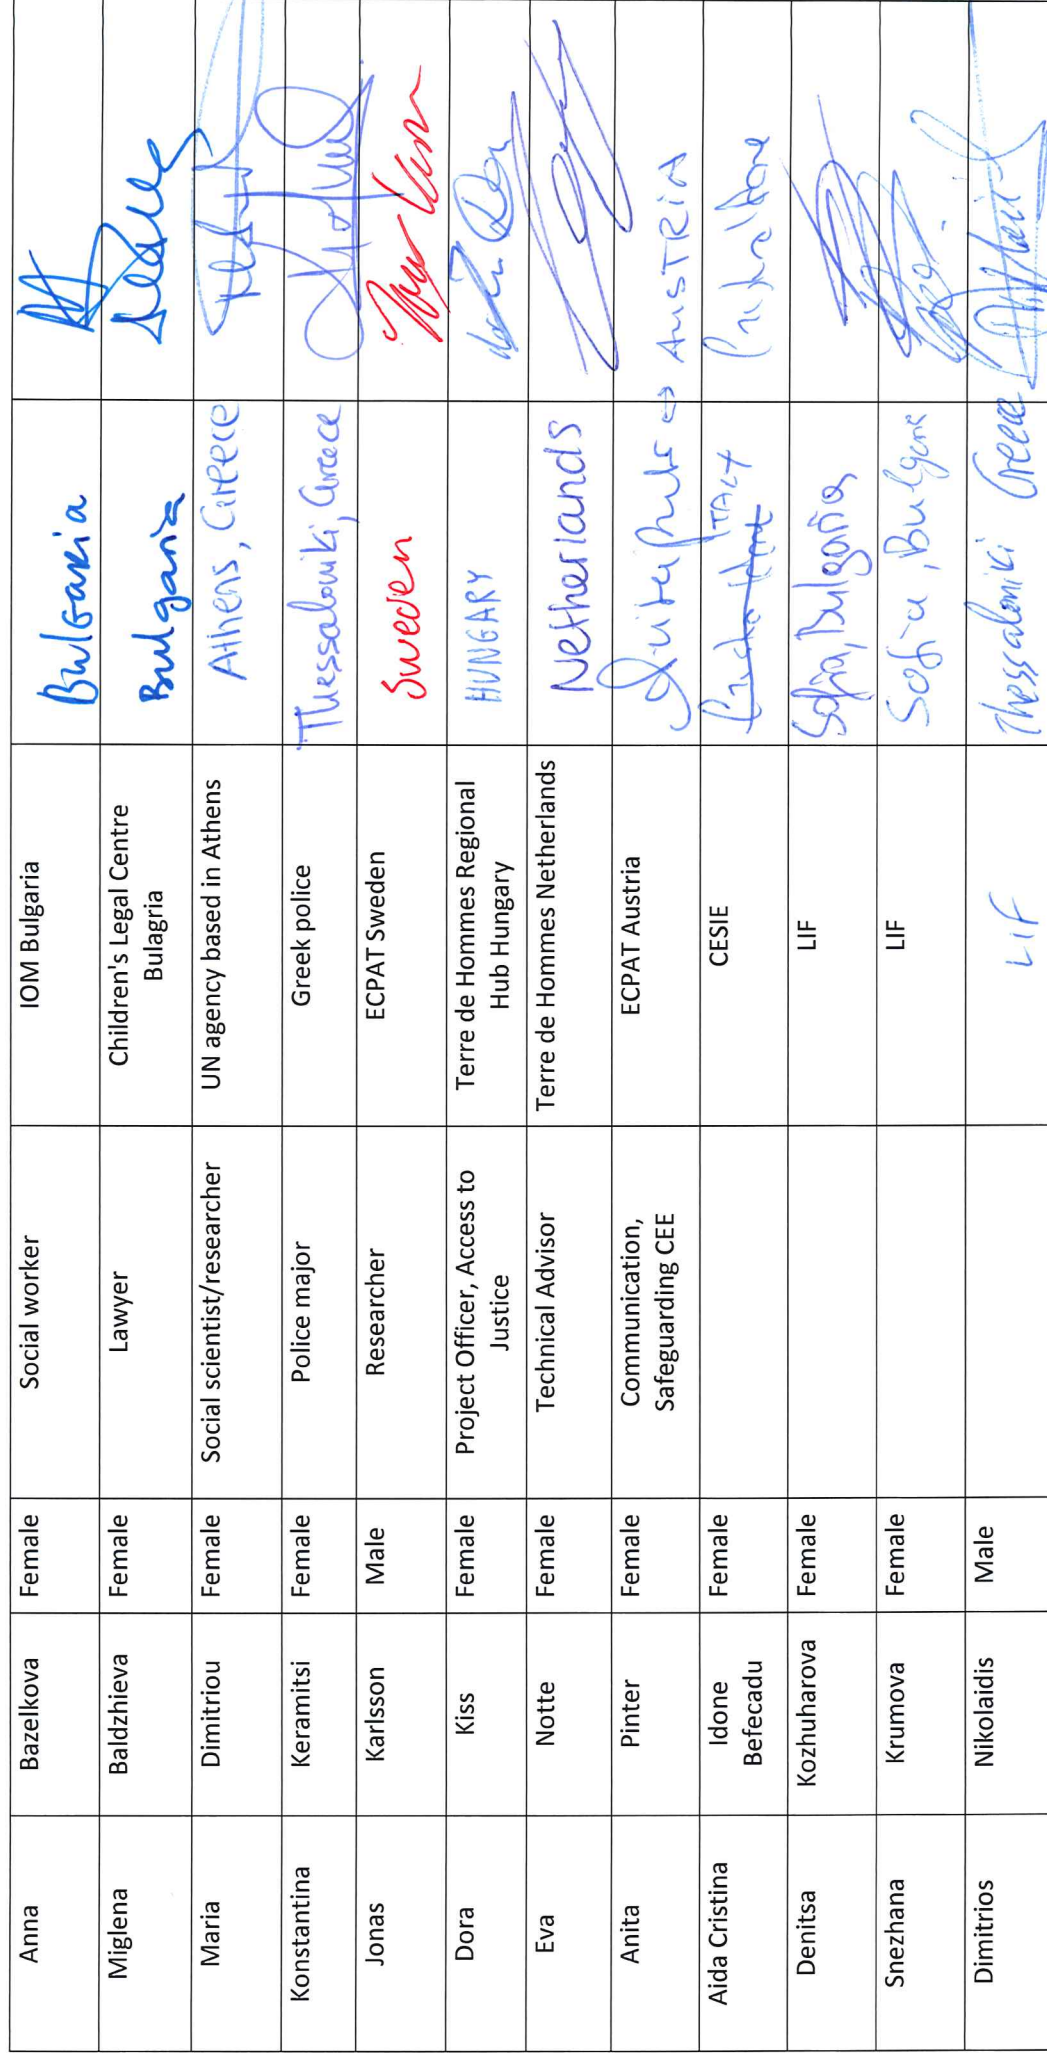 Anna Bazelkova Female Social worker IOM Bulgaria Bulgaria
Miglena Baldzhieva Female Lawyer Children's Legal Centre
Bulagria Bulgaria
Maria Dimitriou Female Social scientist/researcher UN agency based in Athens Athens, Greece
Konstantina Keramitsi Female Police major Greek police Thessaloniki, Greece
Jonas Karlsson Male Researcher ECPAT Sweden Sweden
Dora Kiss Female Project Officer, Access to
Justice Terre de Hommes Regional
Hub Hungary HUNGARY
Eva Notte Female Technical Advisor Terre de Hommes Netherlands Netherlands
Anita Pinter Female Communication,
Safeguarding CEE ECPAT Austria AUSTRIA
Aida Cristina Idone
Befecadu Female CESIE ITALY
Denitsa Kozhuharova Female LIF Sofia, Bulgaria
Snezhana Krumova Female LIF Sofia, Bulgaria
Dimitrios Nikolaidis Male LIF Thessaloniki Greece